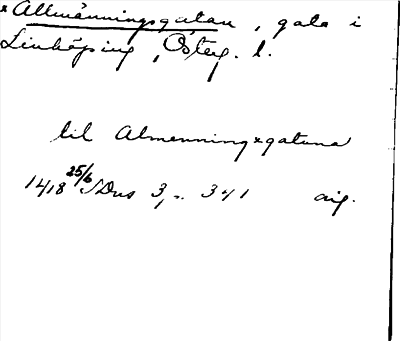 *Allmänningsgatan, gata i
Linköping, Österg. l.
til Almenningxgatuna
1418 25/6 SDns 3, s. 341 orig.